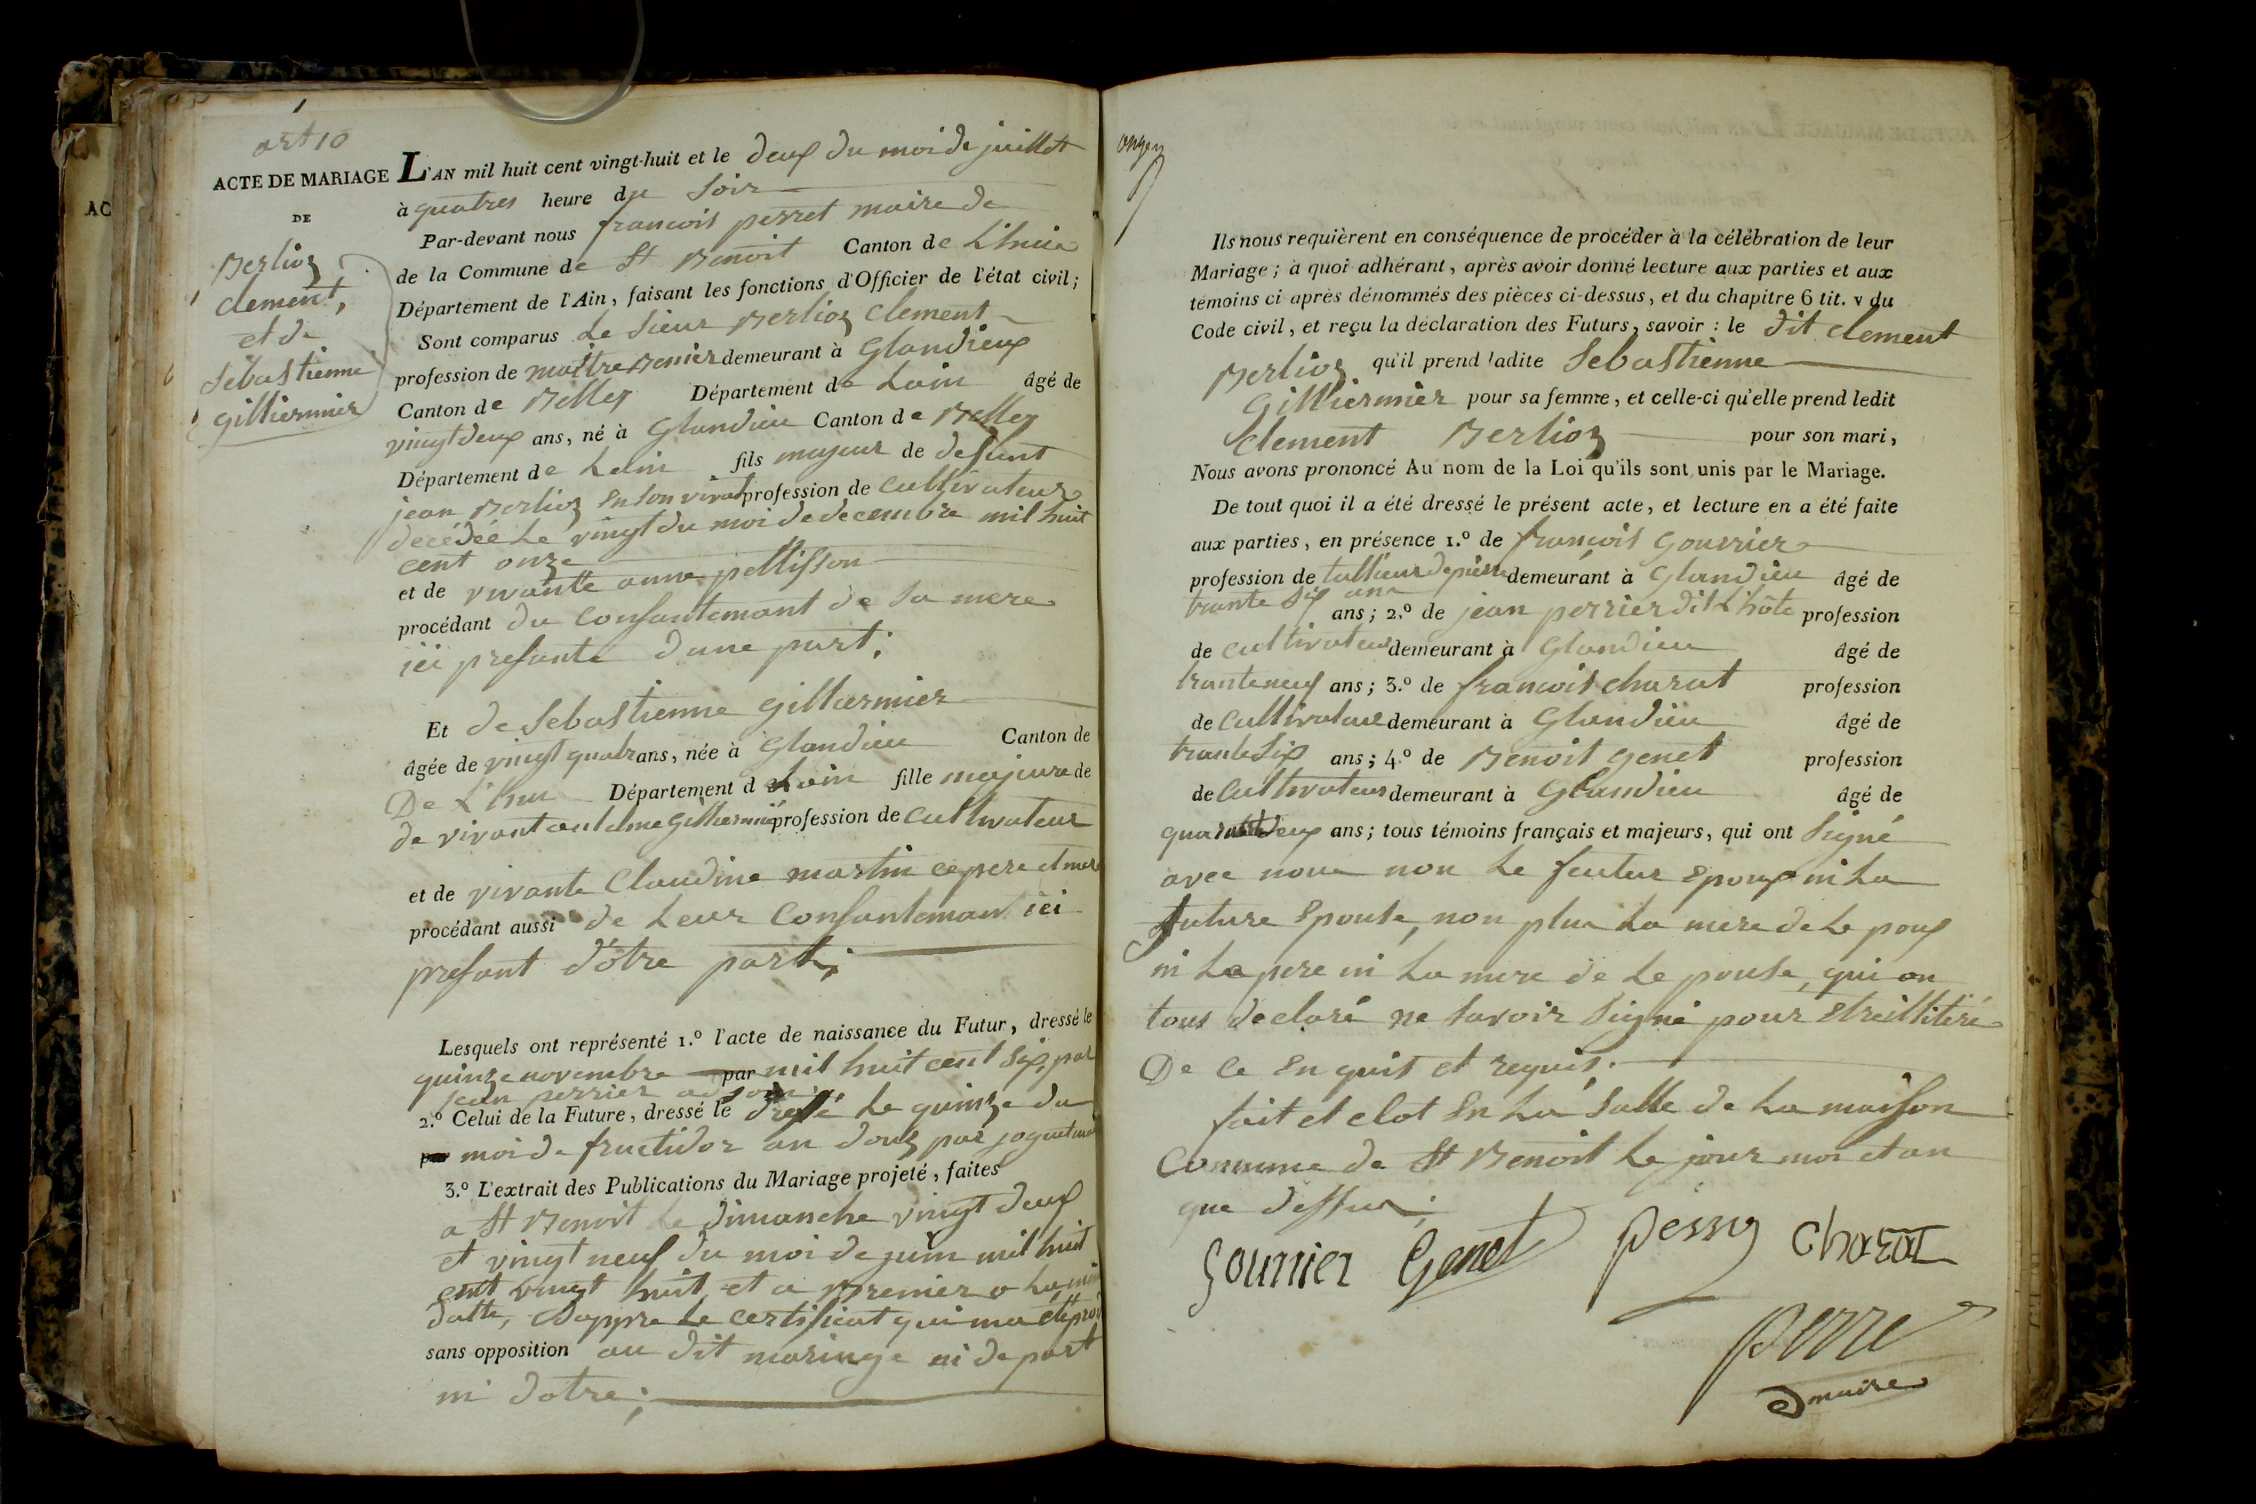 art 10
ACTE DE MARIAGE
DE
Berlioz
clement,
et de
Sebastienne
gilliermier
L'AN mil huit cent vingt-huit et le deux du moi de juillet
à quatres heure du Soir
Par-devant nous francois perret maire de
de la Commune de St Benoit Canton de L'huis
Département de l'Ain, faisant les fonctions d'Officier de l'état civil;
Sont comparus Le Sieur Berlioz Clement
profession de demeurant à Glandieux
Canton de Belley Département de Lain âgé de
vingt deux ans, né à Glandieu Canton de Belley
Département de Lain fils majeur de defunt
jean Berlioz En Son vivat profession de cultivateur
decédée Le vingt du moi de decembre mil huit
cent onze
et de vivante anne pellisson
procédant du Consantemant de Sa mere
ici presante dune part;
Et de Sebastienne gilliermier
âgée de vingt quatr ans, née à Glandieu Canton de
De L'hui Département d Lain fille majeure de
de vivant antelme Gilliermié profession de Cultivateur
et de vivante Claudine martin ce pere et mere
procédant aussi de Leur Consantemant ici
presant d'ôtre part;
Lesquels ont représenté 1.º l'acte de naissance du Futur, dressé le
quinze novembre par mil huit cent Six, par
jean perrier adjoin
2.º Celui de la Future, dressé le dressé Le quinze du
par moi de fructidor an douz par joguet
3.º L'extrait des Publications du Mariage projeté, faites
a St Benoit Le dimanche vingt deux
et vingt neuf du moi de juin mil huit
cent vingt huit, et a Bremier
datte, dappre Le certificat qui ma été
sans opposition au dit mariage ni de part
ni dotre;
Ils nous requièrent en conséquence de procéder à la célébration de leur
Mariage; à quoi adhérant, après avoir donné lecture aux parties et aux
témoins ci après dénommés des pièces ci-dessus, et du chapitre 6 tit. v du
Code civil, et reçu la déclaration des Futurs, savoir: le dit clement
Berlioz qu'il prend ladite Sebastienne
Gilliermier pour sa femme, et celle-ci qu'elle prend ledit
Clement Berlioz pour son mari,
Nous avons prononcé Au nom de la Loi qu'ils sont unis par le Mariage.
De tout quoi il a été dressé le présent acte, et lecture en a été faite
aux parties, en présence 1.º de francois Gourrier
profession de tallieur de pierre demeurant à Glandieu âgé de
trante Six ans; 2.º de jean perrier dit L'hôte profession
de cultivateur demeurant à Glandieu âgé de
trante neuf ans; 3.º de francois charat profession
de Cultivateur demeurant à Glandieu âgé de
trante Six ans; 4.º de Benoit genet profession
de Cultivateur demeurant à Glandieu âgé de
quarante deux ans; tous témoins français et majeurs, qui ont Signé
avec nous non Le futur Epoux ni La
future Epouse, non plus La mere de Le poux
ni Le pere ni La mere de Le pouse, qui on
tous declaré ne Savoir Signé pour Etre illitéré
De Ce En quit et requis.
fait et clot En La Salle de La maison
Commune de St Benoit Le jour moi et an
que dessus;
gourrier Genet Charat
perre
maire